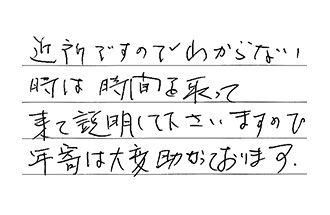 近所ですのでわからない
時は時間を取って
来て説明して下さいますので
年寄は大変助かっております.